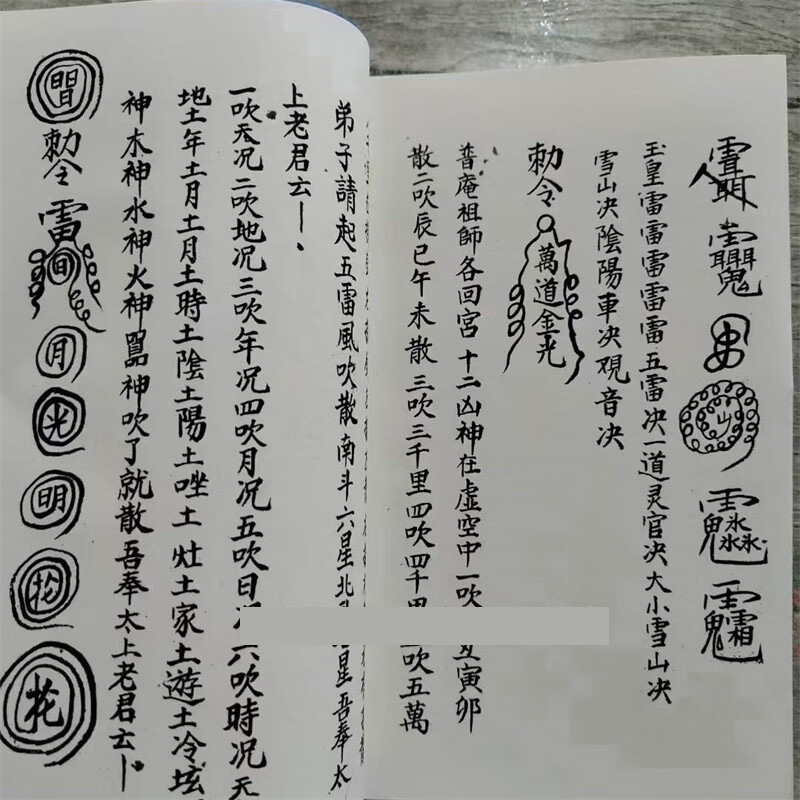 山
玉皇雷雷雷雷雷五雷决一道灵官决大小雪山决
雪山决陰陽車决观音决
勅令
萬道金光
普庵祖師各回宮十二凶神在虛空中一吹寅卯
散二吹辰巳午未散三吹三千里四吹四千吹五萬
弟子請起五雷風吹散南斗六星北星吾奉太
上老君云
一吹天况二吹地况三吹年况四吹月况五吹日六吹時况天
地土年土月土月土時土陰土陽土唑土灶土家土遊土冷坛
神木神水神火神神吹了就散吾奉太上老君云
勅令雷
月
光
明
花